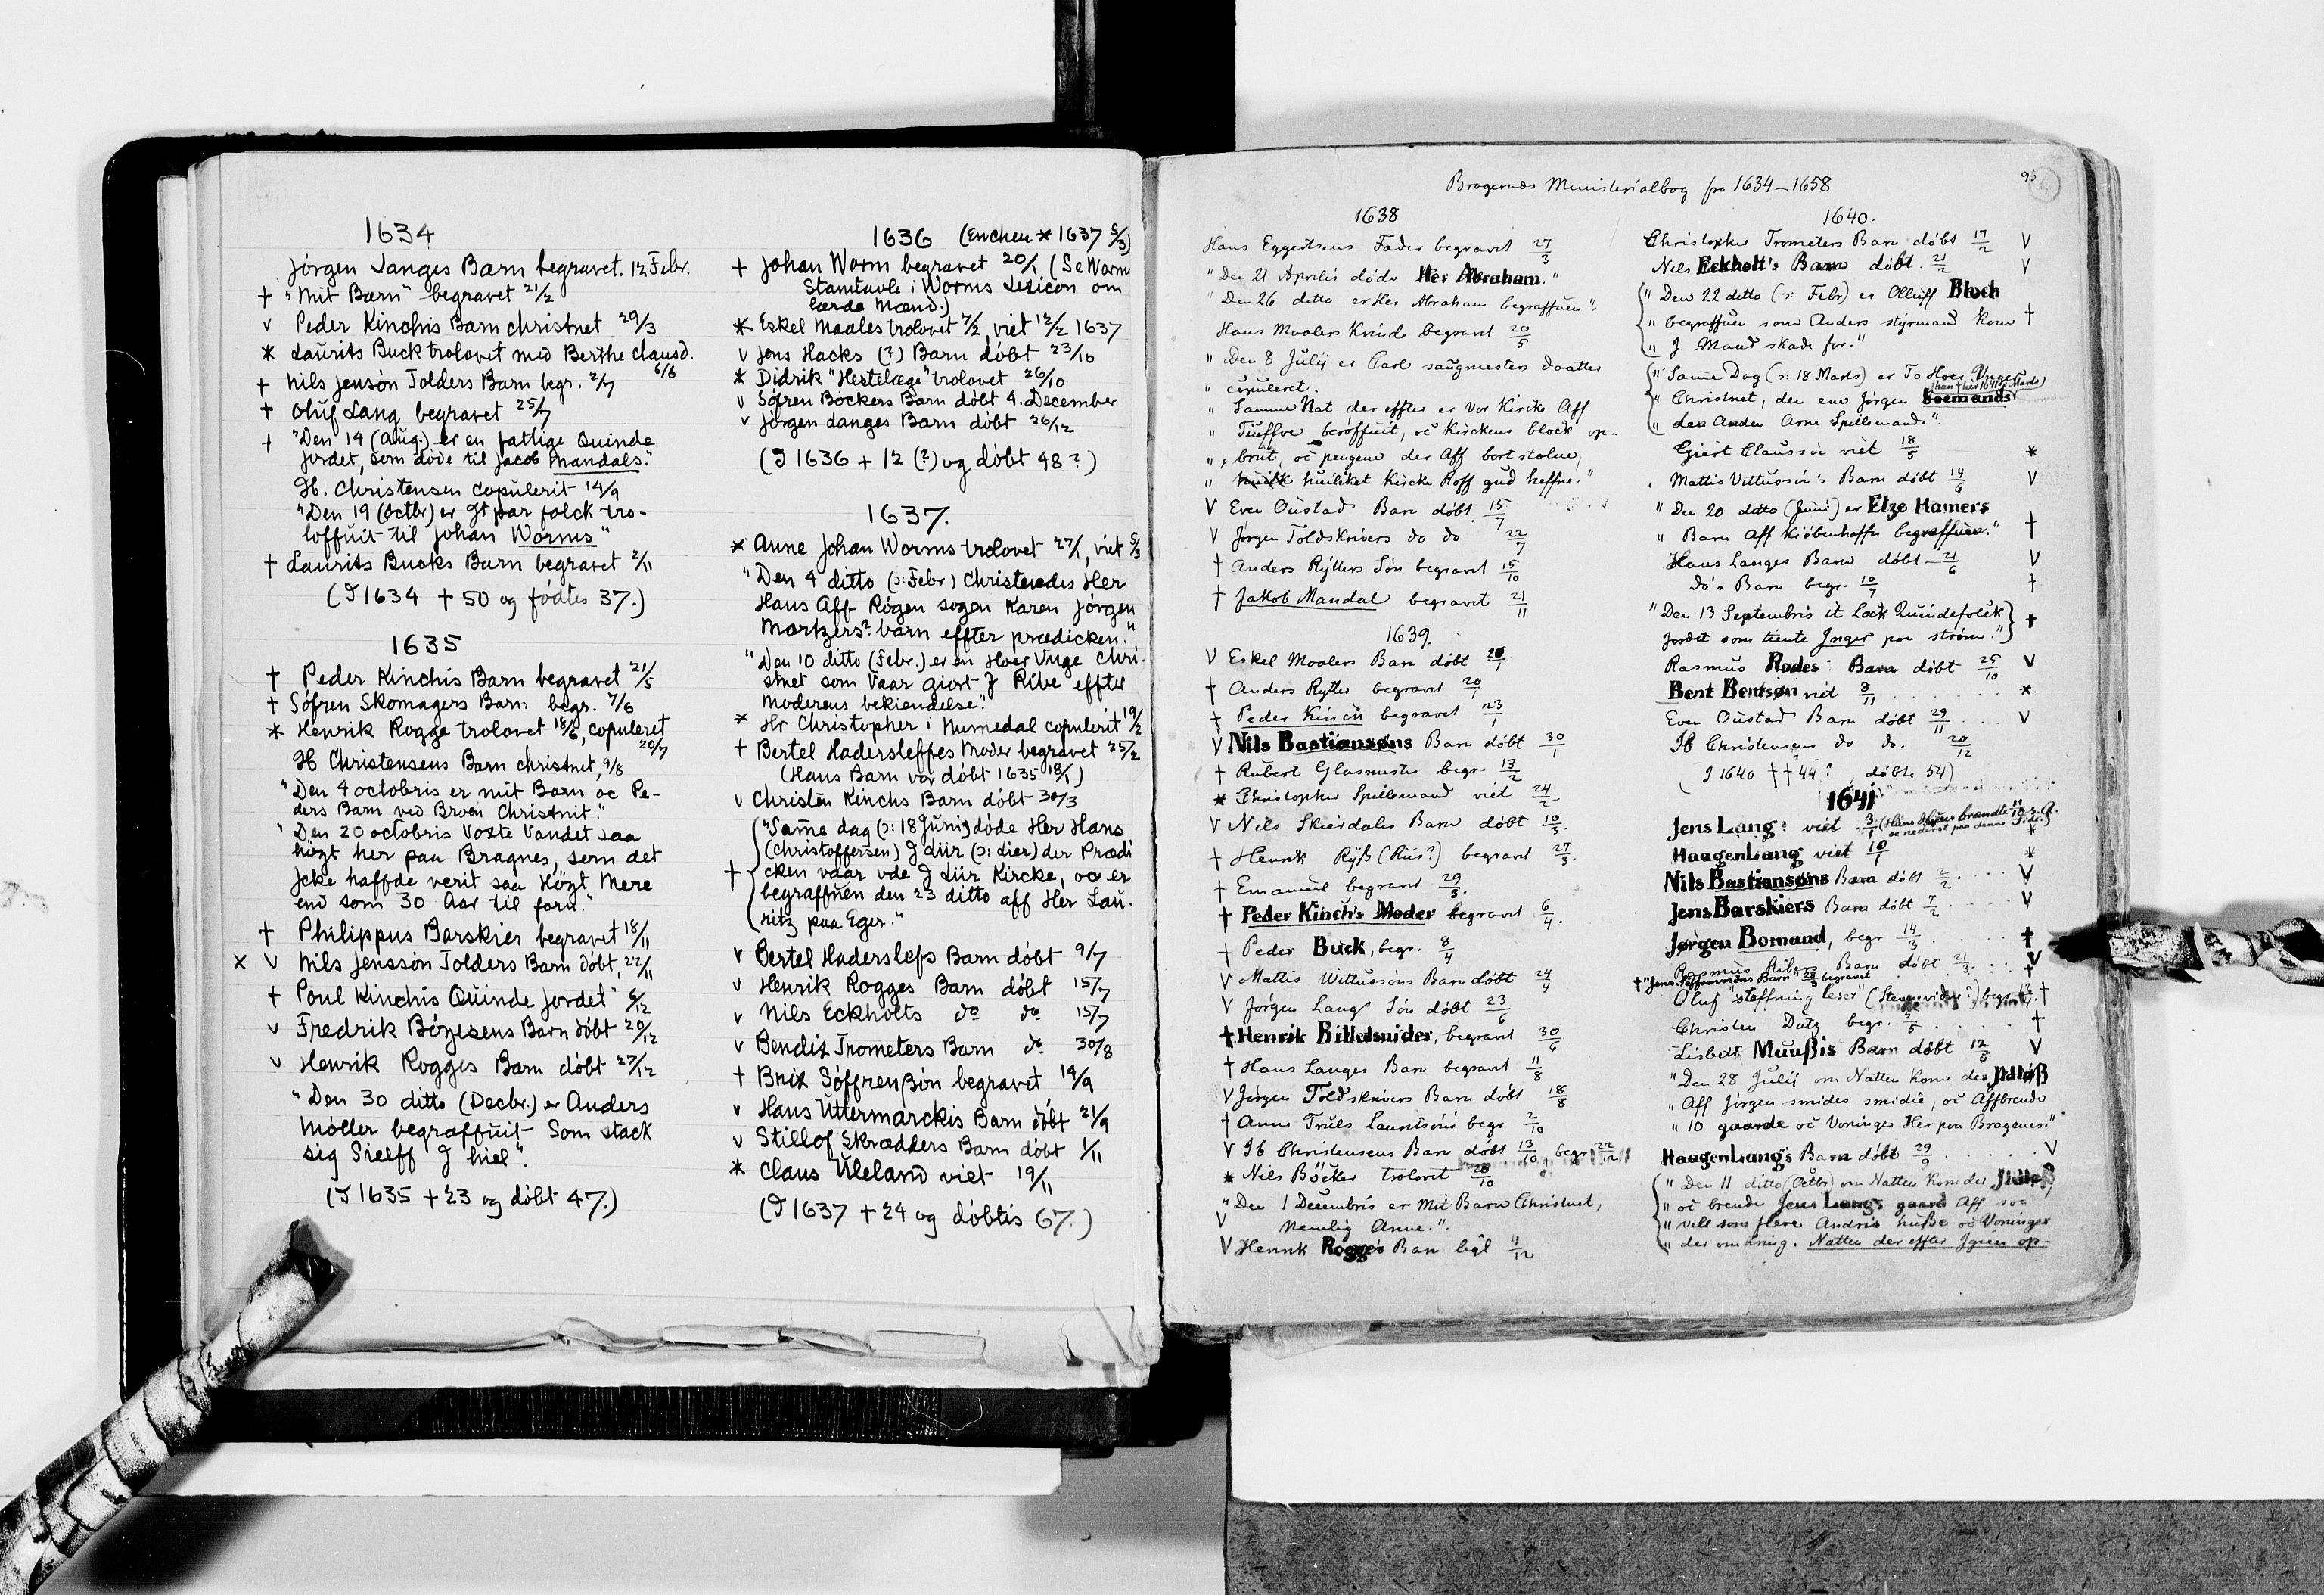 1634
Jörgen Langes Barn begravet. 12 Febr.
† "Mit Barn" begravet 21/2
v Peder Kinchis Barn christnet 29/3
* Laurits Buck trolovet med Berthe Clausd. 6/6
† Nils Jensön Tolders Barn begr. 2/7
† Oluf Lang begravet 25/7
† "Den 14 (Aug.) er en fattige Quinde
Jordet, som döde til Jacob Mandals."
Ib. Christensen copulerit 14/9
"Den 19 (Octbr) er Jt par folck tro-
loffuit til Johan Worms"
† Laurits Bucks Barn begravet 2/11
(I 1634 † 50 og födtes 37.)
1635
† Peder Kinchis Barn begravet 21/5
† Söfren Skomagers Barn begr. 7/6
* Henrik Rogge trolovet 18/6, copuleret 20/7
Ib Christensens Barn christnet, 9/8
"Den 4 octobris er mit Barn oc Pe-
ders Barn ved Broen Christnit."
"Den 20 octobris Voxte Vandet saa
höyt her paa Bragnes, som det
Jcke haffde verit saa Höyt Mere
end som 30 Aar til forn."
† Philippus Barskier begravet 18/11
x v Nils Jenssön Tolders Barn döbt, 22/11
† Poul Kinchis Quinde Jordet 6/12
v Fredrik Böyesens Barn döbt 20/12
v Henrik Rogges Barn döbt 27/12
"Den 30 ditto (Decbr.) er Anders
Möller begraffuit Som stack
sig Sielff J hiel".
(I 1635 † 23 og döbt 47.)
1636 (Enchen * 1637 5/3)
† Johan Worm begravet 20/1 (Se Worm
Stamtavle i Worms Lexicon om
lærde Mænd.)
* Eskel Maales trolovet 7/2, viet 12/2 1637
v Jens Hacks (?) Barn döbt 23/10
* Didrik "Hestelæge" trolovet 26/10
v Söfren Böckers Barn döbt 4. December
v Jörgen Langes Barn döbt 26/12
(I 1636 † 12 (?) og döbt 48?)
1637.
* Anne Johan Worms trolovet 27/1, viet 5/3
"Den 4 ditto (ɔ: Febr) Christnedis Her
Hans Aff Rögen sogen Karen Jörgen
Markzers? barn effter prædicken."
"Den 10 ditto (Febr.) er en Hoer Unge Chri-
stnet som Vaar giort J Ribe effter
Moderens bekiendelse."
* Hr Christopher i Numedal copulerit 19/2
† Bertel Hadersleffes Moder begravet 25/2
(Hans Barn var döbt 1635 18/1)
v Christen Kinchs Barn döbt 30/3
"Same dag (ɔ: 18 Junij) döde Her Hans
(Christoffersen) J Liir (ɔ: Lier) der Prædi
† cken vaar ude J Liir Kircke, oc er
begraffuen den 23 ditto aff Her Lau-
ritz paa Eger."
v Bertel Haderslefs Barn döbt 9/7
v Henrik Rogges Barn döbt 15/7
v Nils Eckholts do do 15/7
v Bendix Trometers Barn do 30/8
† Brix Söffrenßön begravet 14/9
v Hans Uttermarckis Barn döbt 21/9
v Stillof Skrædders Barn döbt 1/11
* Claus Uleland viet 19/11
(I 1637 † 24 og döbtis 67.)
Bragernes Ministerialbog fra 1634–1658
93
1638
Hans Eggertsens Fader begravet 27/3
"Den 21 Aprilis döde Her Abraham."
"Den 26 ditto er Her Abraham begraffuen".
Hans Maalers Kvinde begravet 20/5
" Den 8 Julij er Carl saugmesters daatter
" copuleret.
" Samme Nat der effter er Vor Kircke Aff
" Tiuffve beröffuit, oc Kirckens block op-
" brut, oc pengene der Aff bortstolne,
" huilket Kircke Roff gud heffne."
V Even Oustads Barn döbt 15/7
V Jörgen Toldskrivers do do 22/7
† Anders Rytters Sön begravet 15/10
† Jakob Mandal begravet 21/11
1639.
V Eskel Maalers Barn döbt 20/1
† Anders Rytter begravet 20/1
† Peder Kinch begravet 23/1
V Nils Bastiansøns Barn döbt 30/1
† Rubert Glasmester begr. 13/2
* Christopher Spillemand viet 24/2
V Nils Skierdalers Barn döbt 10/3.
† Henrik Ryß (Riis?) begravet 27/3.
† Emanuel begravet 29/3.
† Peder Kinch's Moder begravet 6/4.
† Peder Buck, begr. 8/4
V Mattis Wittussöns Barn döbt 24/4
V Jörgen Langs Sön döbt 23/6
† Henrik Billedsnider, begravet 30/6
† Hans Langes Barn begravet 11/8
V Jörgen Toldskrivers Barn döbt 18/8
† Anne Truls Lauritsöns begr 2/10
V Ib Christensens Barn döbt 13/10, begr. 22/12
* Nils Böcker trolovet 28/10
"Den 1 Decembris er Mit Barn Christnet,
V Nemlig Anne.".
V Henrik Rogge's Barn ligl 4/12
1640.
Christopher Trometers Barn döbt 17/2 V
Nils Eckholt's Barn döbt. 21/2 V
" Den 22 ditto (ɔ: Febr) er Olluff Bloch
" begraffuen som Anders styrmand kom †
" J Mand skade for."
" Same Dag (ɔ: 18 Marts) er To Hoer Unger
" Christnet, den ene Jörgen Boemands
" den Anden Arne Spillemands".
Giert Claussön viet 18/5 *
Mattis Vittussön's Barn döbt 14/6 V
" Den 20 ditto (Juni) er Elze Hamers
" Barn Aff Kiöbenhaffn begraffuen." †
Hans Langes Barn döbt 21/6 V
Do's Barn begr. 10/7 †
" Den 13 Septembris it Lock Quindefolck
Jordet som tiente Inger paa ström." †
Rasmus Rodes Barn döbt 25/10 V
Bent Bentsøn viet 8/11 *
Even Oustads Barn döbt 29/11 V
Ib Christensens do do. 20/12
(I 1640 †† 44? , döbte 54)
1641
Jens Lang: viet 3/1 (Hans Huus brændte 11/10 s. A.
se nederst paa denne Side) *
Haagen Lang viet 10/1 *
Nils Bastiansøns Barn döbt 2/2 V
Jens Barskiers Barn döbt 7/2 V
Jørgen Bomand, begr 14/3 †
Rasmus Ribers Barn döbt 21/3 V
† "Jens Söffrenssöns Barn" 28/3 begravet †
Oluf steffning leser" begr. †
Christen Dutz begr. 5/5 †
Lisbett Muußis Barn döbt 12/5 V
"Den 28 Julij om Natten kom der Jldløß
" Aff Jörgen smides smidie, oc Affbrende
" 10 gaarde oc Voninges Her paa Bragenes."
Haagen Lang's Barn döbt 29/9 V
" Den 11 ditto (Octbr) om Natten kom der Jldløß
" oc brende Jens Lang's gaard Aff saa
" vell som flere Andris huße oc Voninger
" der omkring. Natten der effter Igien op-